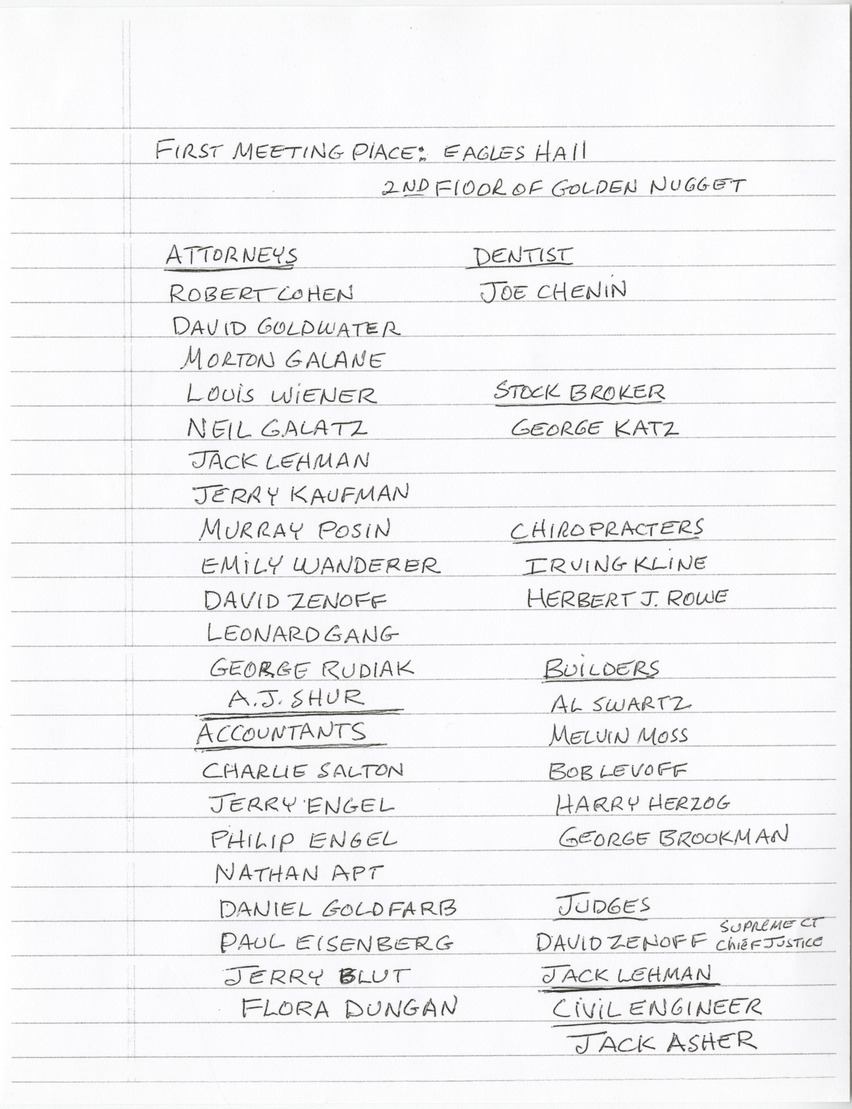 FIRST MEETING PLACE: EAGLES HALL
2ND FLOOR OF GOLDEN NUGGET
ATTORNEYS
ROBERT COHEN
DAVID GOLDWATER
MORTON GALANE
LOUIS WIENER
NEIL GALATZ
JACK LEHMAN
JERRY KAUFMAN
MURRAY POSIN
EMILY WANDERER
DAVID ZENOFF
LEONARD GANG
GEORGE RUDIAK
A.J. SHUR
ACCOUNTANTS
CHARLIE SALTON
JERRY ENGEL
PHILIP ENGEL
NATHAN APT
DANIEL GOLDFARB
PAUL EISENBERG
JERRY BLUT
FLORA DUNGAN
DENTIST
JOE CHENIN
STOCK BROKER
GEORGE KATZ
CHIROPRACTERS
IRVING KLINE
HERBERT J. ROWE
BUILDERS
AL SWARTZ
MELVIN MOSS
BOB LEVOFF
HARRY HERZOG
GEORGE BROOKMAN
JUDGES
DAVID ZENOFF SUPREME CT
CHIEF JUSTICE
JACK LEHMAN
CIVIL ENGINEER
JACK ASHER